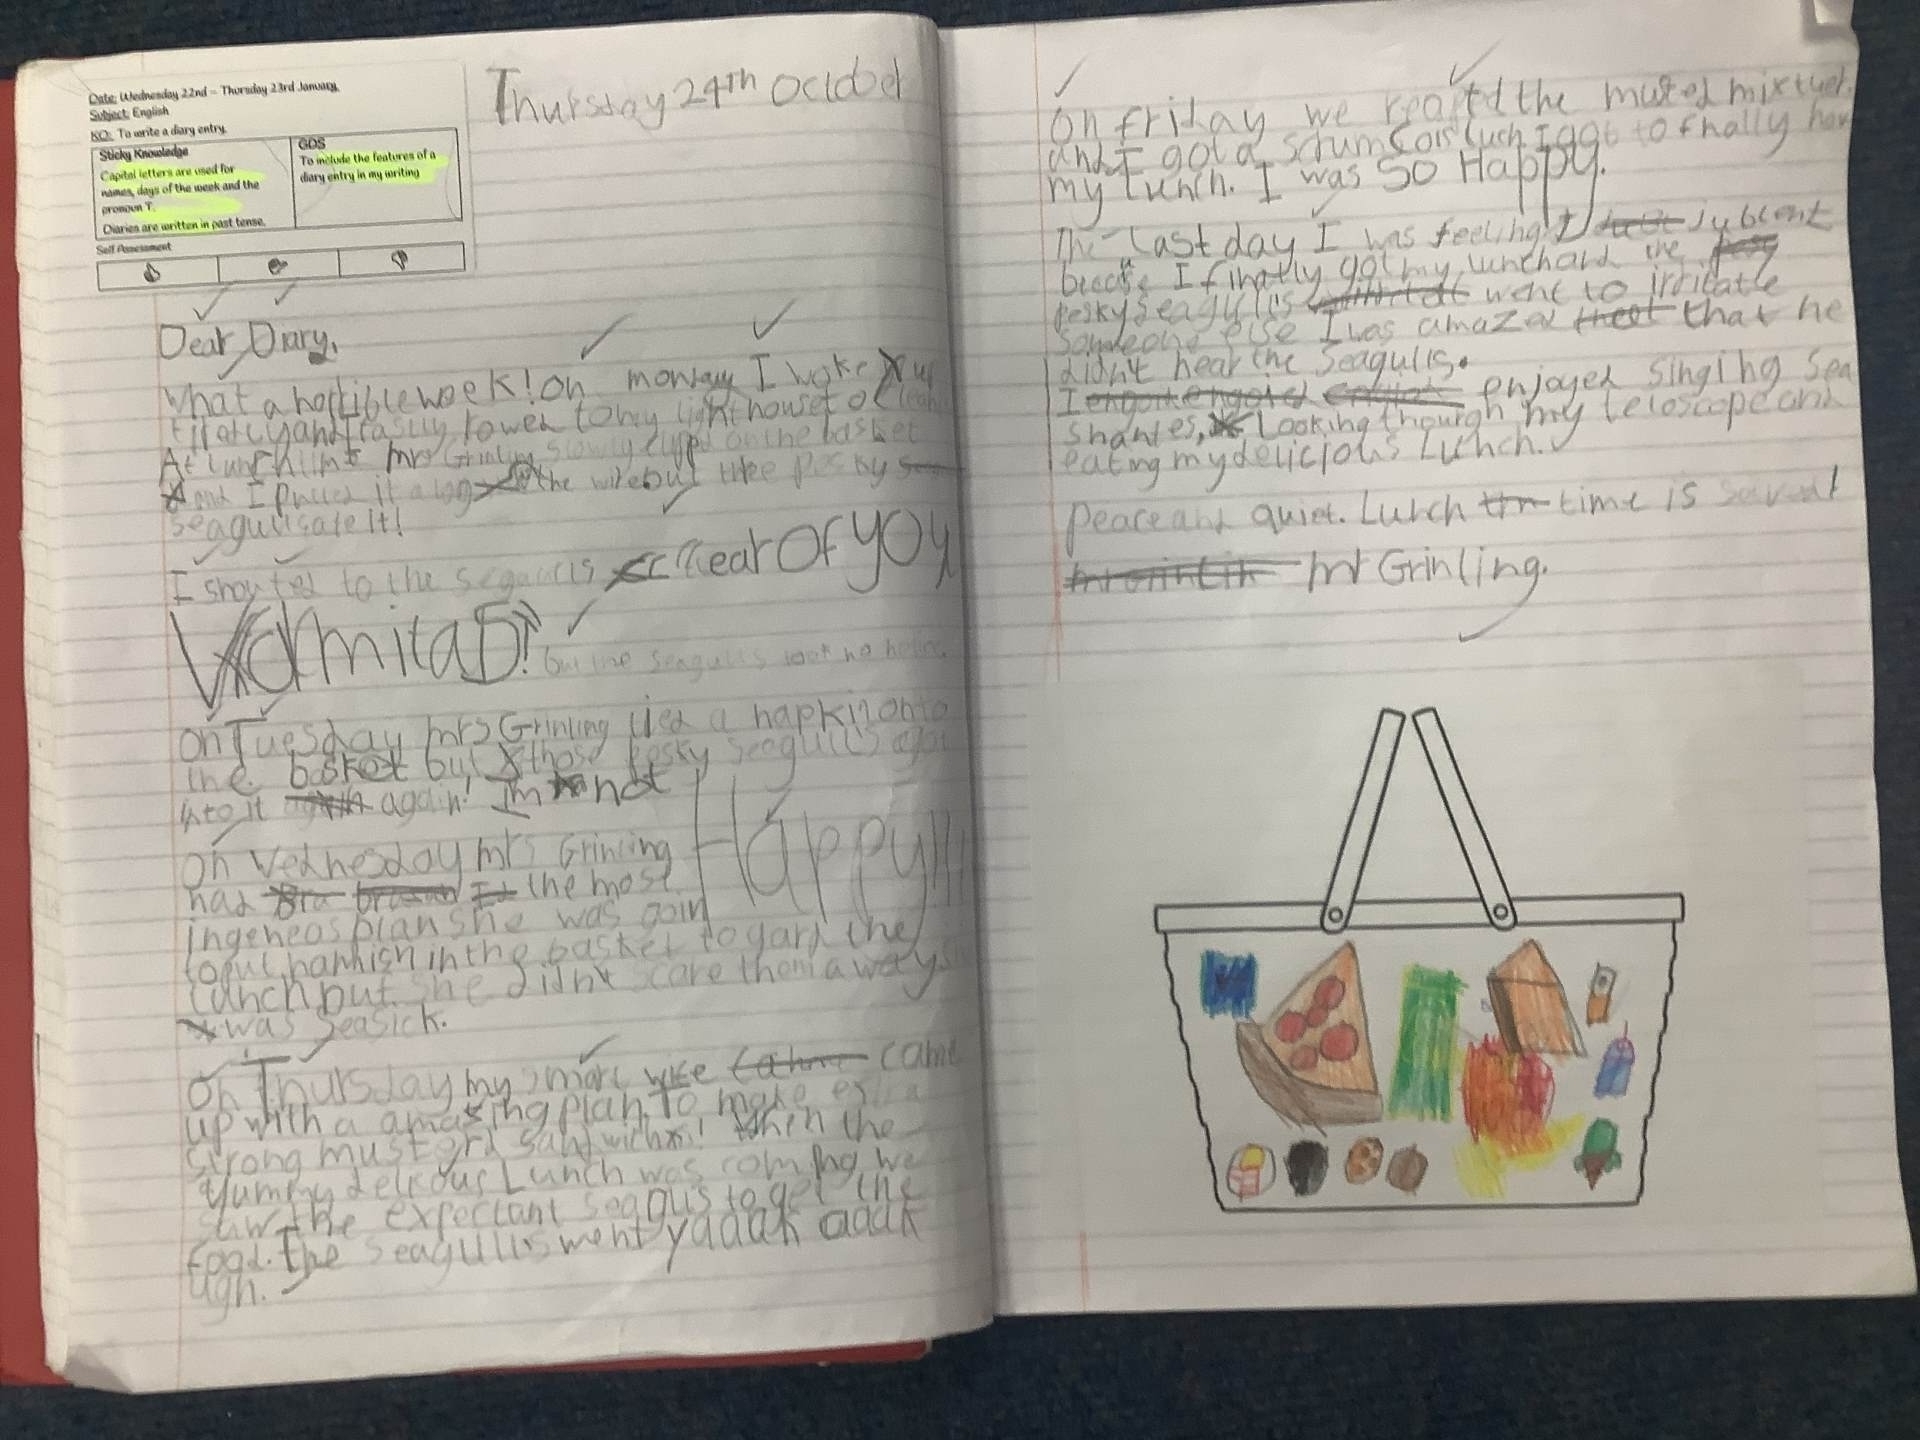 Date: Wednesday 22nd – Thursday 23rd January.
Subject: English
KO: To write a diary entry.
Sticky Knowledge
Capital letters are used for
names, days of the week and the
pronoun 'I'.
Diaries are written in past tense.
GDS
To include the features of a
diary entry in my writing
Self Assessment
Thursday 24th October
Dear Diary,
What a horrible week! On monday I woke up
and rowed to my light house to clean
At lunch time mrs Grinling slowly clipped on the basket
and I pulled it along the wire but three pesky
seagulls ate it!
I shouted to the segaulls clear of you
Varmitas! but the seagulls took no
on Tuesday mrs Grinling tied a napkin onto
the basket but those pesky seagulls
into it again! Im not
Happy!!!
on Wednesday mrs Grinling
had the most
ingeneos plan she was goin
to put hamhish in the basket to gard the
lunch but she didn't scare them away
was seasick.
On Thursday my smart wife came
up with a amazing plan. To make extra
strong musterd sandwich! When the
yummy delicous Lunch was coming we
saw the expectant seaguls to get the
food. The seagulls went yaaak aaak
ugh.
on friday we the musted mixtuer
and I got a I got to finally hav
my lunch. I was SO Happy.
The last day I was feeling jubelant
because I finally got my lunch and the
pesky seagulls went to irritate
someone else I was amazed that he
didn't hear the seagulls.
I enjoyed singing sea
shantes, Looking thourgh my teloscope and
eating my delicious Lunch.
peace and quiet. Lunch time is
mr Grinling.